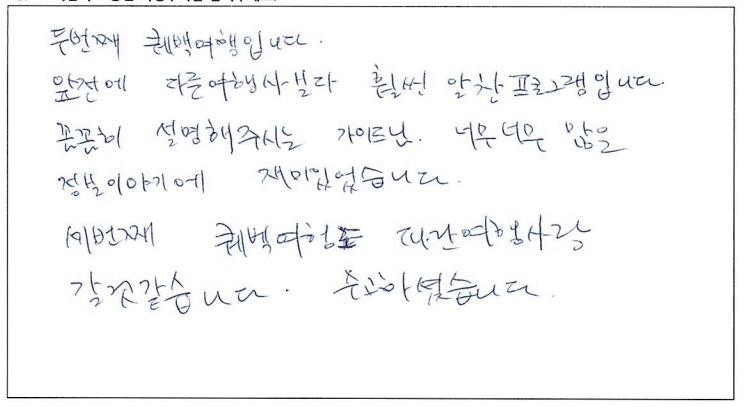 두번째 퀘백여행입니다.
앞전에 다른여행사보다 훨씬 알찬 프로그램입니다.
꼼꼼히 설명해주시는 가이드님. 너무너무 많은
정보이야기에 재미있었습니다.
세번째 퀘벡여행도 대한여행사랑
갈것같습니다. 수고하셨습니다.